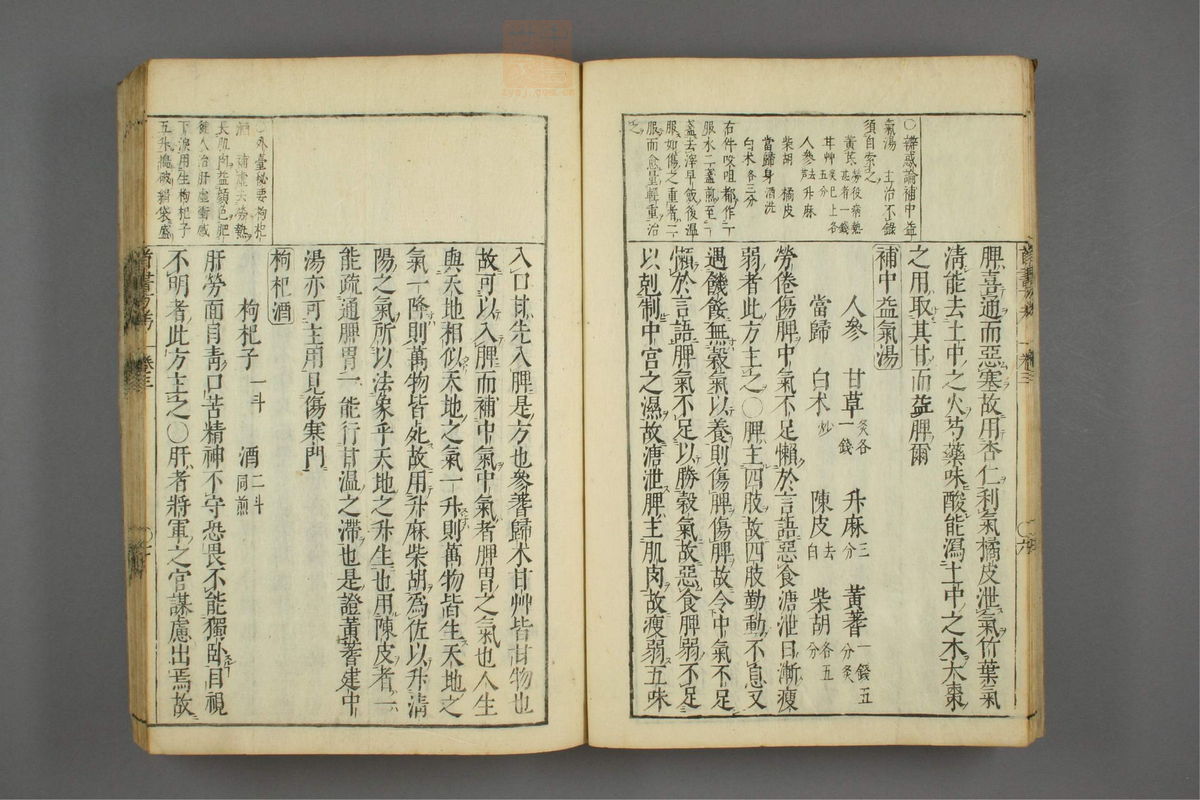 〇辨惑論補中益
氣湯 主治不錄
須自索之
黃芪 勞役病熱甚者一錢
甘艸 炙巳上各五分
人參 去芦 升麻
柴胡 橘皮
當歸身 酒洗
白朮 各三分
右件㕮咀都作一
服水二盞煎至一
盞去滓早飯後溫
服如傷之重者二
服而愈量輕重治
之
脾喜通而惡塞故用杏仁利氣橘皮泄氣竹葉氣
淸能去土中之火芍藥味酸能瀉土中之木大棗
之用取其甘而益脾爾
補中益氣湯
人參 甘草 炙各一錢 升麻 三分 黃蓍 一錢五分炙
當歸 白朮 炒 陳皮 去白 柴胡 各五分
勞倦傷脾中氣不足懶於言語惡食溏泄日漸瘦
弱者此方主之〇脾主四肢故四肢勤動不息又
遇饑餒無穀氣以養則傷脾傷脾故令中氣不足
懶於言語脾氣不足以勝穀氣故惡食脾弱不足
以剋制中宮之濕故溏泄脾主肌肉故瘦弱五味
首書方考 卷三 〇六
〇外臺秘要枸杞
酒 補虛去勞熱
長肌肉益顏色肥
健人治肝虛衝感
下淚用生枸杞子
五升搗破絹袋盛
入口甘先入脾是方也參蓍歸朮甘艸皆甘物也
故可以入脾而補中氣中氣者脾胃之氣也人生
與天地相似天地之氣一升則萬物皆生天地之
氣一降則萬物皆死故用升麻柴胡爲佐以升淸
陽之氣所以法象乎天地之升生也用陳皮者一
能疏通脾胃一能行甘溫之滯也是證黃蓍建中
湯亦可主用見傷寒門
枸杞酒
枸杞子 一斗 酒 二斗同煎
肝勞面目靑口苦精神不守恐畏不能獨臥目視
不明者此方主之〇肝者將軍之官謀慮出焉故
首書方考 卷三 〇七